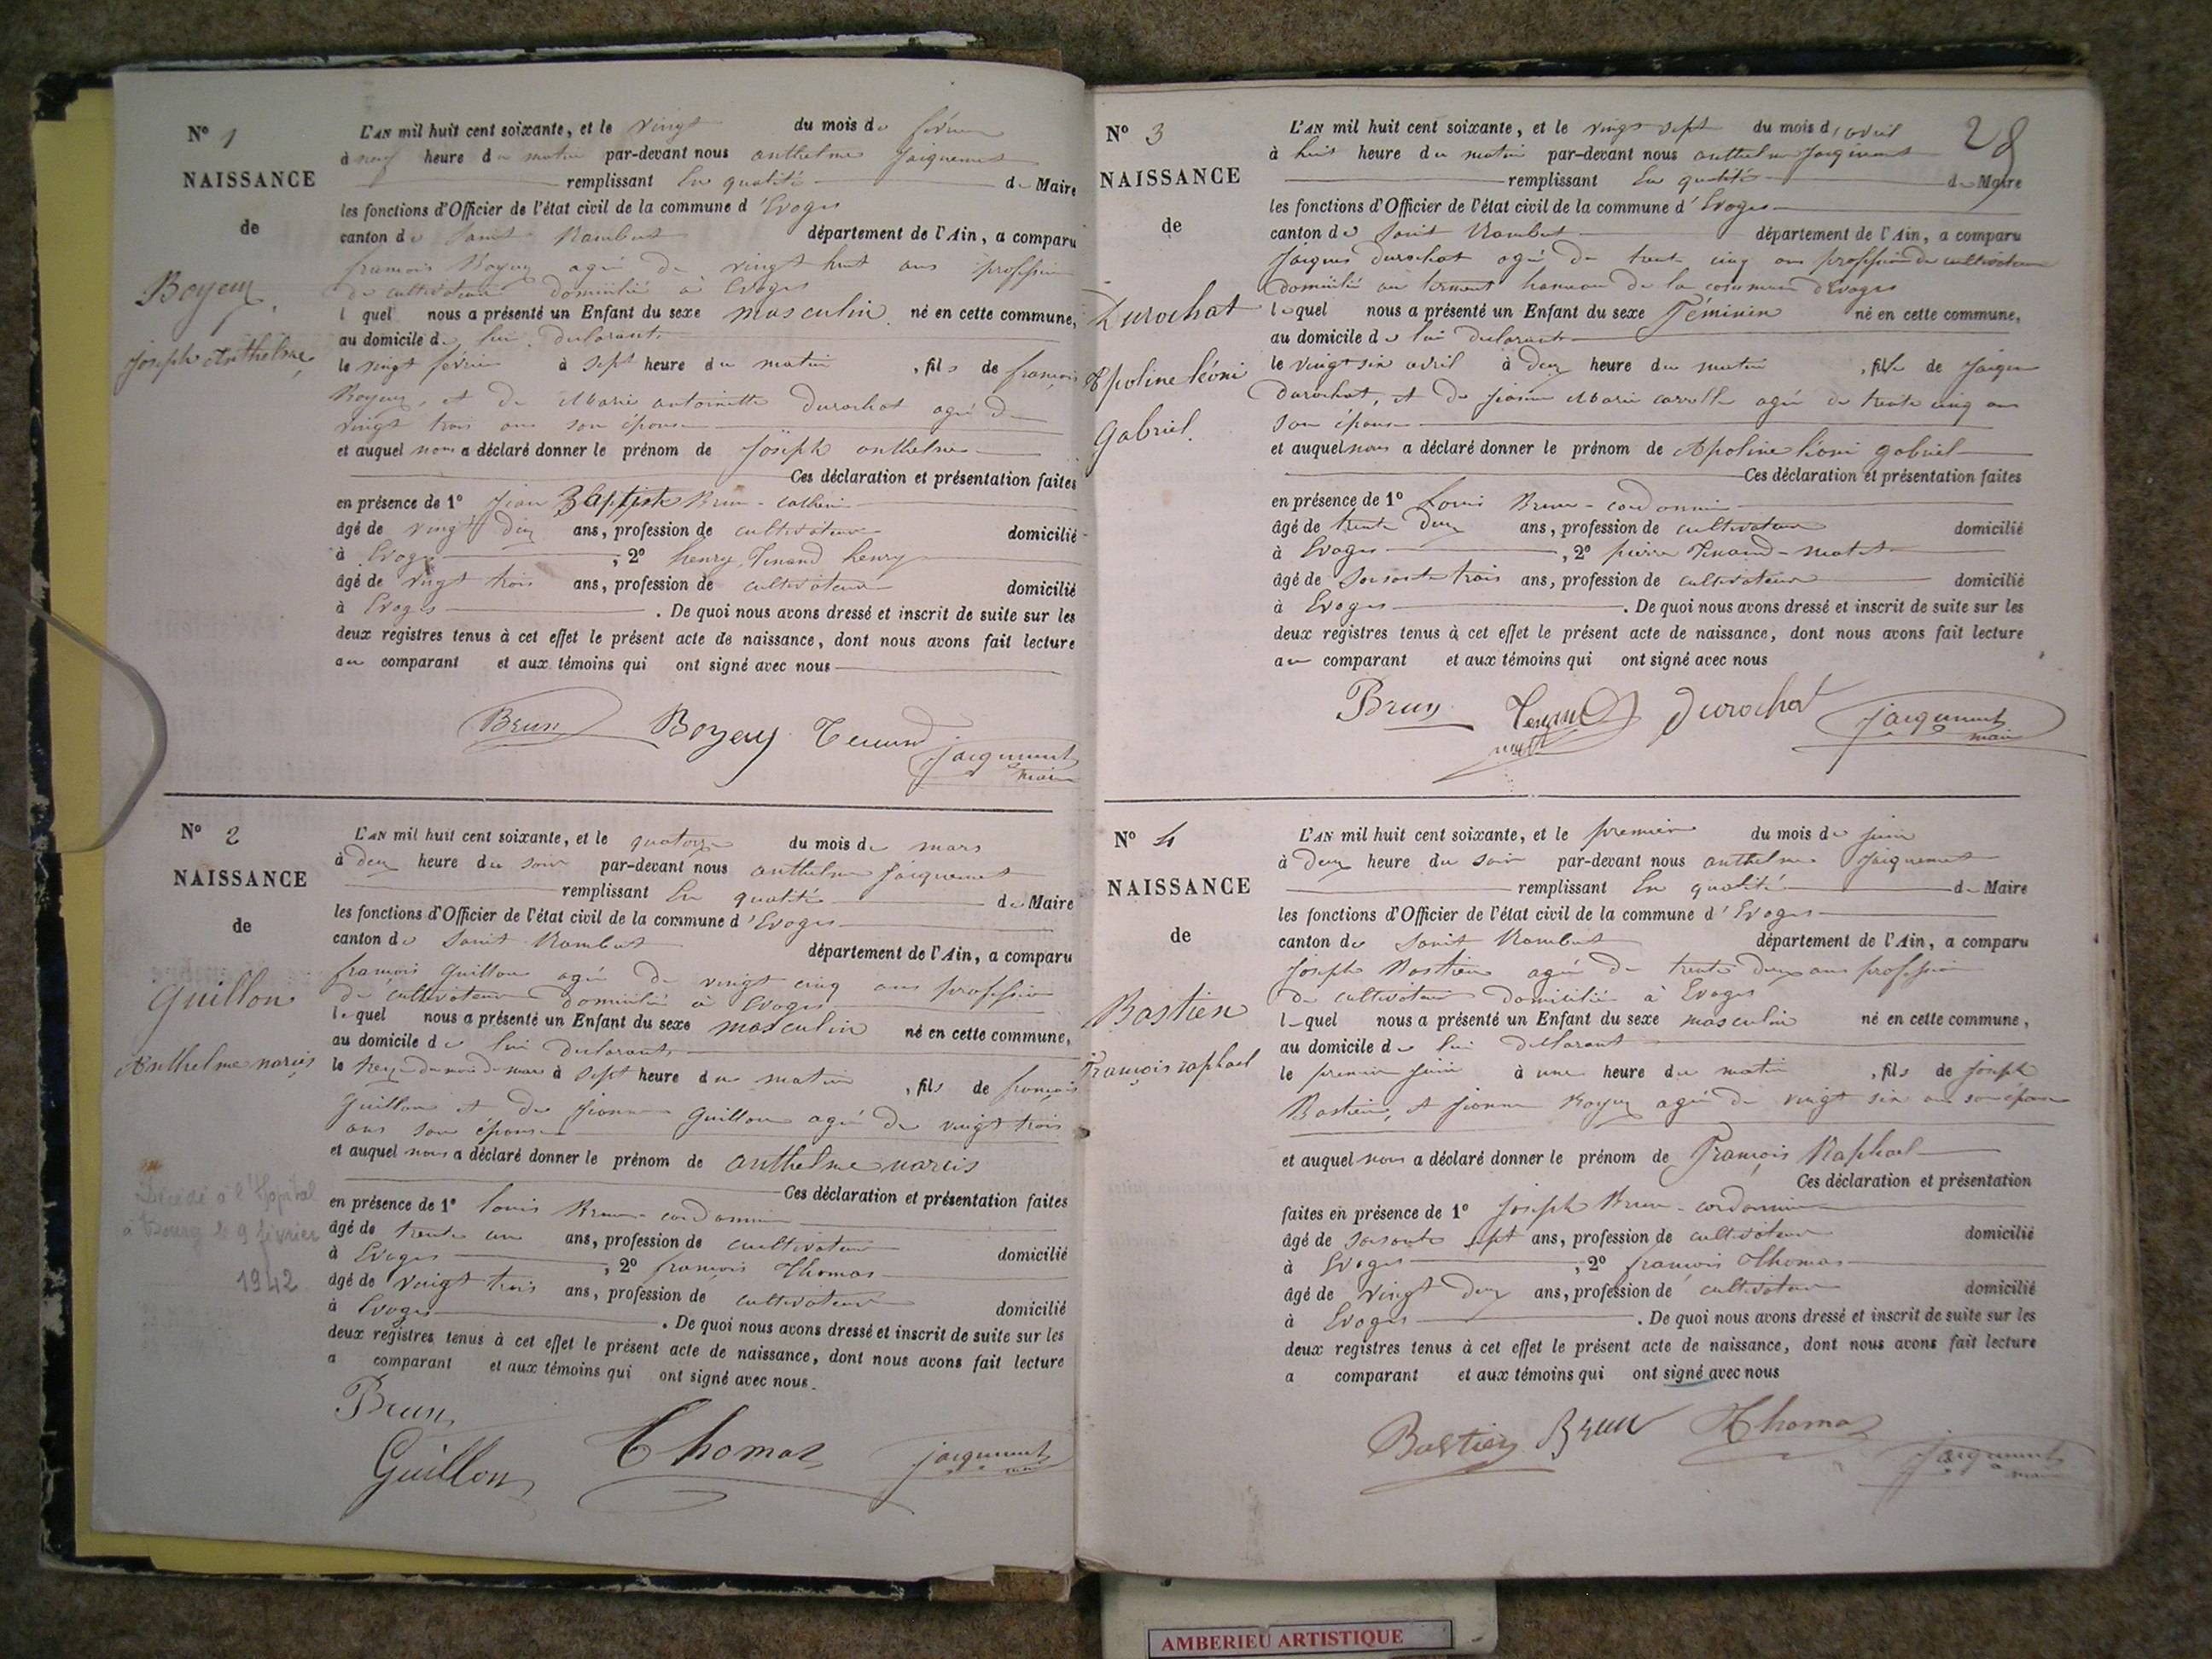 N° 1
NAISSANCE
de
Boyeux
Joseph Anthelme
L'AN mil huit cent soixante, et le vingt du mois de février
à neuf heure du matin par-devant nous anthelme Jacquemet
remplissant En qualité de Maire
les fonctions d'Officier de l'état civil de la commune d'Evoges
canton de Saint Rambert département de l'Ain, a comparu
françois Boyeux agé de vingt huit ans profession
de cultivateur domicilié à Evoges
lequel nous a présenté un Enfant du sexe masculin né en cette commune,
au domicile de lui declarant
le vingt février à sept heure du matin, fils de françois
Boyeux, et de Marie antoinette Durochat agée de
vingt trois ans son épouse
et auquel nous a déclaré donner le prénom de Joseph anthelme
Ces déclaration et présentation faites
en présence de 1° Jean Baptiste Brun - catherin
âgé de vingt dix ans, profession de cultivateur domicilié
à Evoges, 2° henry Tenand henry
âgé de vingt trois ans, profession de cultivateur domicilié
à Evoges. De quoi nous avons dressé et inscrit de suite sur les
deux registres tenus à cet effet le présent acte de naissance, dont nous avons fait lecture
au comparant et aux témoins qui ont signé avec nous
Brun Boyeux Tenand
Jacquemet
maire
N° 2
NAISSANCE
de
Guillon
Anthelme narcis
Décédé à l'Hopital
à Bourg le 9 février
1942
L'AN mil huit cent soixante, et le quatorze du mois de mars
à deux heure du soir par-devant nous anthelme Jacquemet
remplissant En qualité de Maire
les fonctions d'Officier de l'état civil de la commune d'Evoges
canton de Saint Rambert département de l'Ain, a comparu
françois Guillon agé de vingt cinq ans profession
de cultivateur domicilié à Evoges
lequel nous a présenté un Enfant du sexe masculin né en cette commune,
au domicile de lui declarant
le treize du mois de mars à sept heure du matin, fils de françois
Guillon et de Jeanne Guillon agée de vingt trois
ans son épouse
et auquel nous a déclaré donner le prénom de anthelme narcis
Ces déclaration et présentation faites
en présence de 1° louis Brun - cordonnier
âgé de trente un ans, profession de cultivateur domicilié
à Evoges, 2° françois Thomas
âgé de vingt trois ans, profession de cultivateur domicilié
à Evoges. De quoi nous avons dressé et inscrit de suite sur les
deux registres tenus à cet effet le présent acte de naissance, dont nous avons fait lecture
a comparant et aux témoins qui ont signé avec nous.
Brun
Guillon Thomas Jacquemet
28
N° 3
NAISSANCE
de
Durochat
Apoline léoni
Gabriel
L'AN mil huit cent soixante, et le vingt sept du mois d'avril
à huit heure du matin par-devant nous anthelme Jacquemet
remplissant En qualité de Maire
les fonctions d'Officier de l'état civil de la commune d'Evoges
canton de Saint Rambert département de l'Ain, a comparu
Jacques Durochat agé de trente cinq ans profession de cultivateur
Domicilié au hameau de la commune d'Evoges
lequel nous a présenté un Enfant du sexe Féminin né en cette commune,
au domicile de lui declarant
le vingt six avril à deux heure du matin, fille de Jacques
Durochat, et de Jeanne Marie agée de trente cinq ans
son épouse
et auquel nous a déclaré donner le prénom de Apoline léoni gabriel
Ces déclaration et présentation faites
en présence de 1° Louis Brun - cordonnier
âgé de trente deux ans, profession de cultivateur domicilié
à Evoges, 2° pierre Tenand
âgé de soixante trois ans, profession de cultivateur domicilié
à Evoges. De quoi nous avons dressé et inscrit de suite sur les
deux registres tenus à cet effet le présent acte de naissance, dont nous avons fait lecture
au comparant et aux témoins qui ont signé avec nous
Brun Tenand Durochat Jacquemet
maire
N° 4
NAISSANCE
de
Bastien
François raphael
L'AN mil huit cent soixante, et le premier du mois de juin
à deux heure du soir par-devant nous anthelme Jacquemet
remplissant En qualité de Maire
les fonctions d'Officier de l'état civil de la commune d'Evoges
canton de Saint Rambert département de l'Ain, a comparu
Joseph Bastien agé de trente deux ans profession
de cultivateur domicilié à Evoges
lequel nous a présenté un Enfant du sexe masculin né en cette commune,
au domicile de lui déclarant
le premier juin à une heure du matin, fils de joseph
Bastien, et jeanne Boyeux agée de vingt six ans son épouse
et auquel nous a déclaré donner le prénom de François Raphael
Ces déclaration et présentation
faites en présence de 1° Joseph Brun - cordonnier
âgé de soixante sept ans, profession de cultivateur domicilié
à Evoges, 2° françois Thomas
âgé de vingt deux ans, profession de cultivateur domicilié
à Evoges. De quoi nous avons dressé et inscrit de suite sur les
deux registres tenus à cet effet le présent acte de naissance, dont nous avons fait lecture
a comparant et aux témoins qui ont signé avec nous
Bastien Brun Thomas
Jacquemet
maire
AMBERIEU ARTISTIQUE